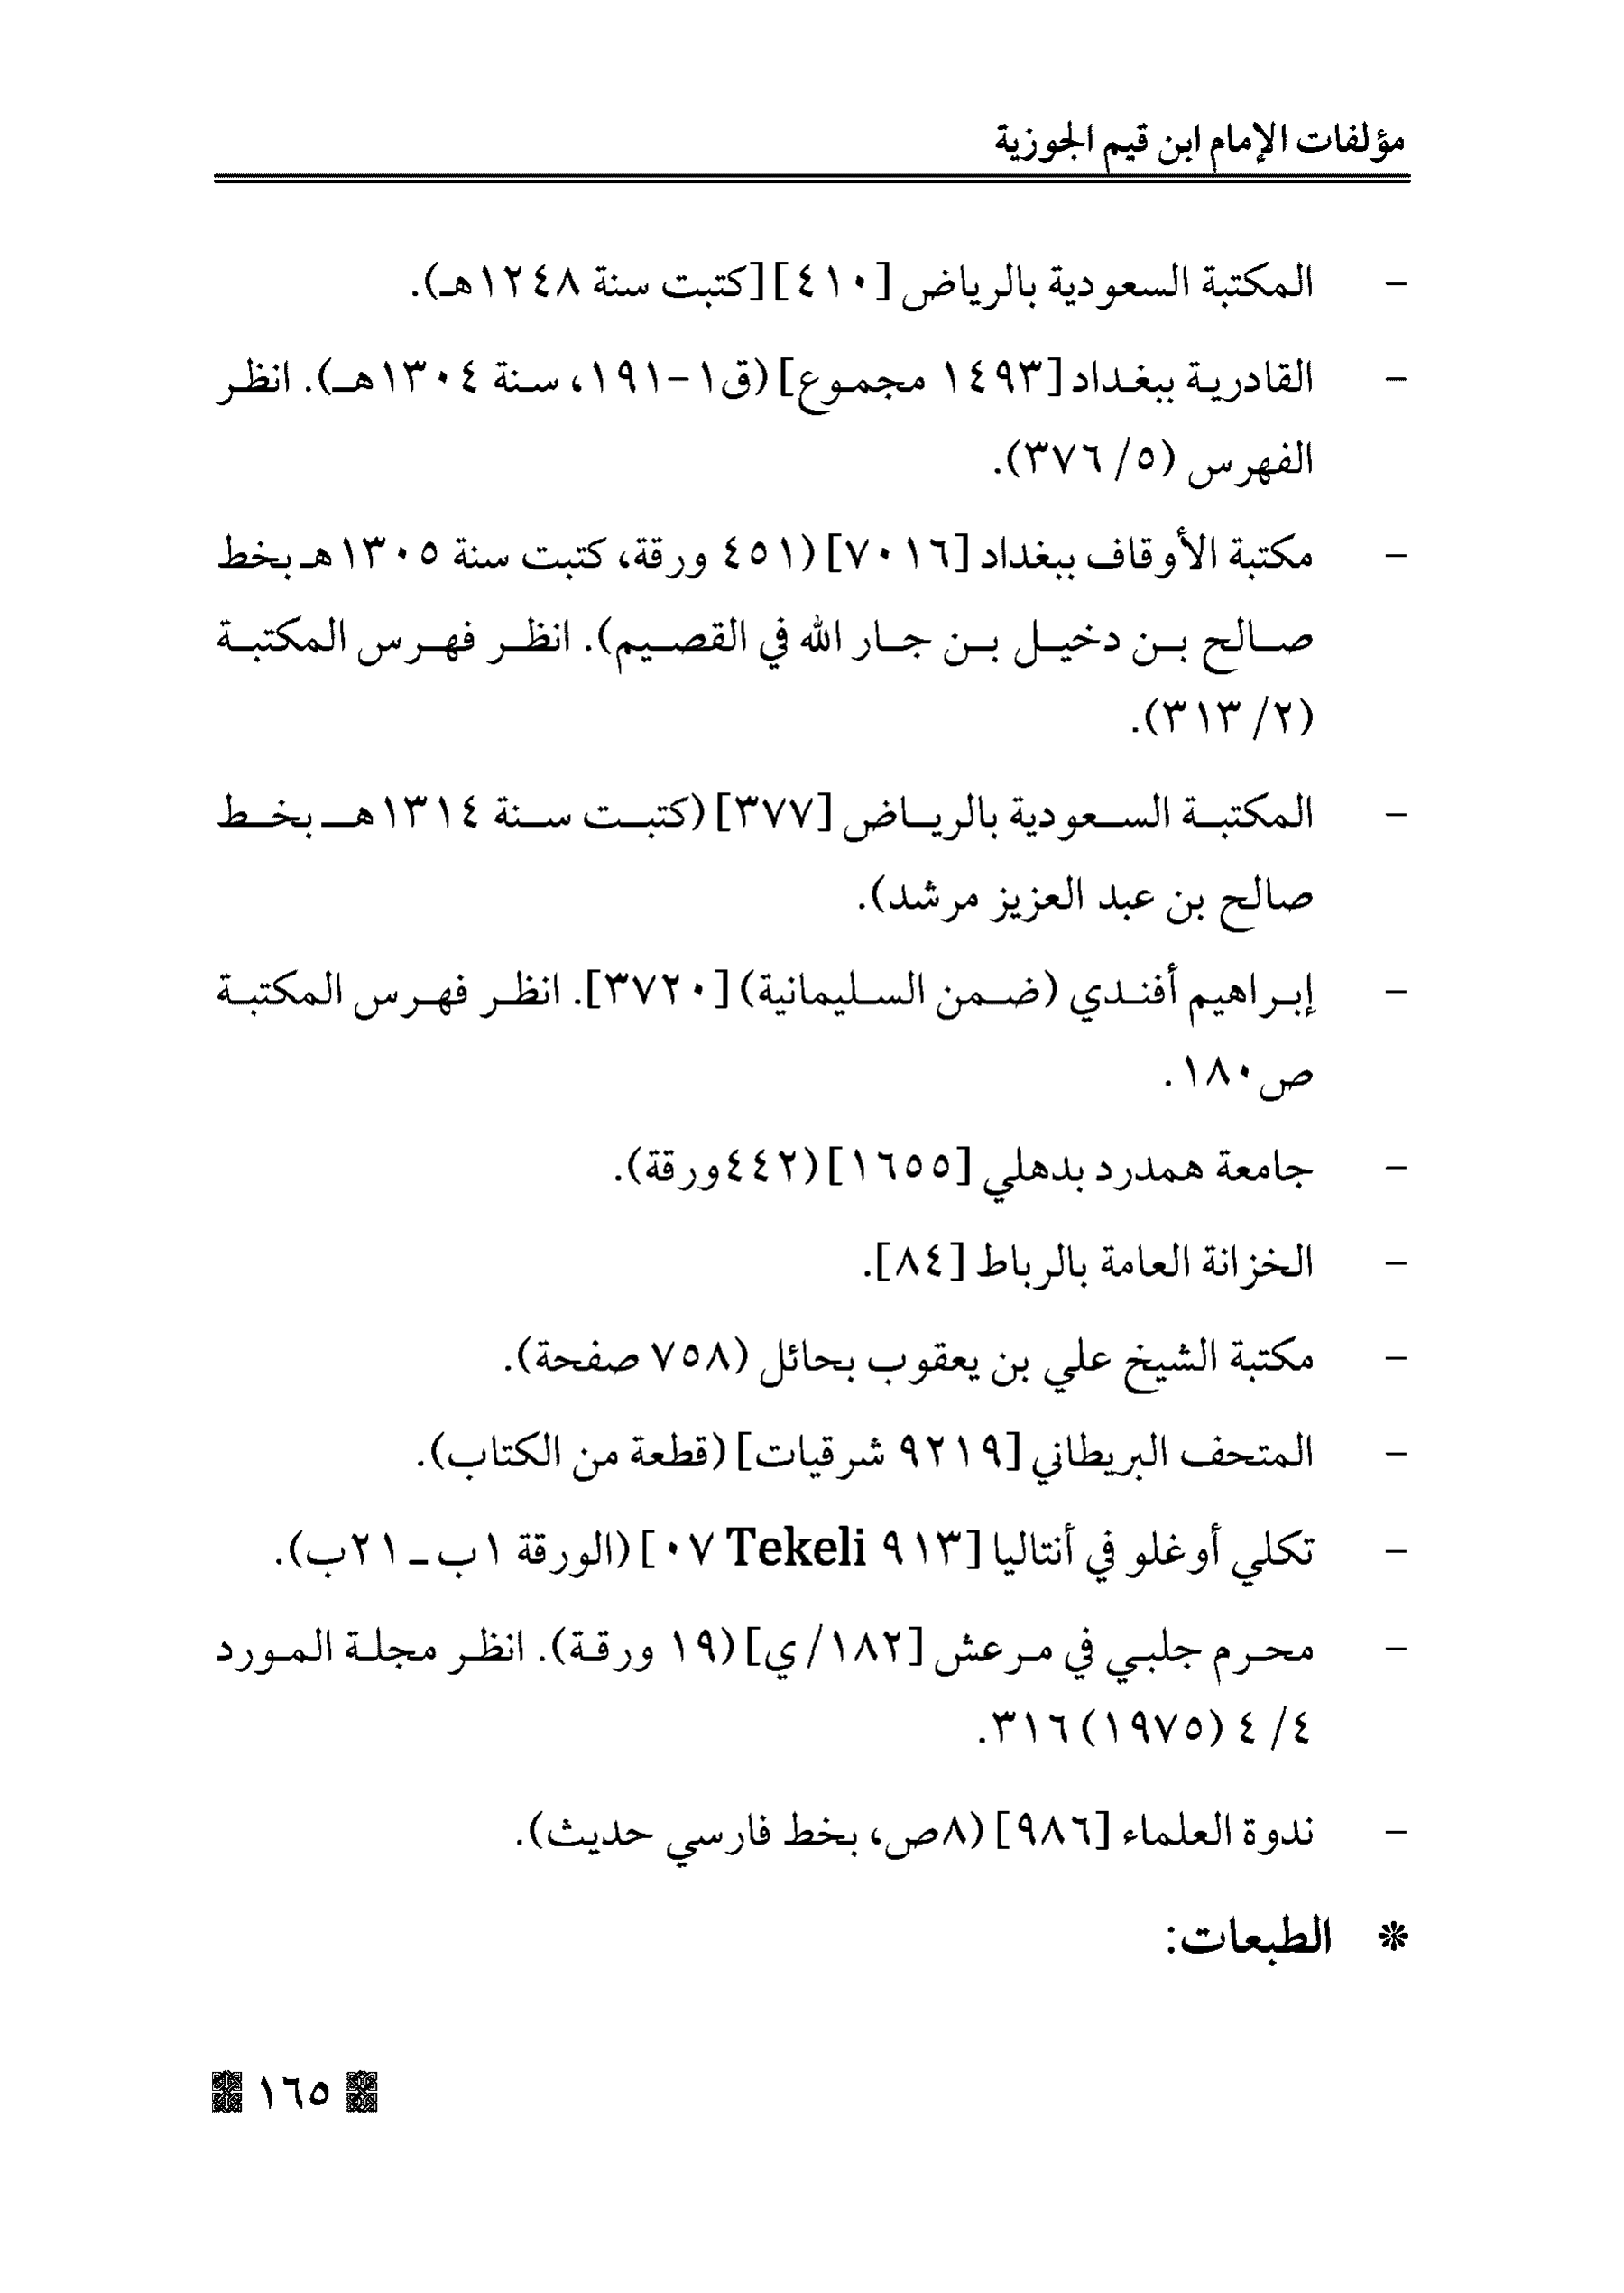 مؤلفات الإمام ابن قيم الجوزية
– المكتبة السعودية بالرياض [٤١٠] [كتبت سنة ١٢٤٨هـ).
– القادرية ببغداد [١٤٩٣ مجموع] (ق١-١٩١، سنة ١٣٠٤هـ). انظر
الفهرس (٥/ ٣٧٦).
– مكتبة الأوقاف ببغداد [٧٠١٦] (٤٥١ ورقة، كتبت سنة ١٣٠٥هـ بخط
صالح بن دخيل بن جار الله في القصيم). انظر فهرس المكتبة
(٢/ ٣١٣).
– المكتبة السعودية بالرياض [٣٧٧] (كتبت سنة ١٣١٤هـ بخط
صالح بن عبد العزيز مرشد).
– إبراهيم أفندي (ضمن السليمانية) [٣٧٢٠]. انظر فهرس المكتبة
ص١٨٠.
– جامعة همدرد بدهلي [١٦٥٥] (٤٤٢ورقة).
– الخزانة العامة بالرباط [٨٤].
– مكتبة الشيخ علي بن يعقوب بحائل (٧٥٨ صفحة).
– المتحف البريطاني [٩٢١٩ شرقيات] (قطعة من الكتاب).
– تكلي أوغلو في أنتاليا [٩١٣ Tekeli ٠٧] (الورقة ١ب ـ ٢١ب).
– محرم جلبي في مرعش [١٨٢/ ي] (١٩ ورقة). انظر مجلة المورد
٤/ ٤ (١٩٧٥) ٣١٦.
– ندوة العلماء [٩٨٦] (٨ص، بخط فارسي حديث).
* الطبعات:
١٦٥